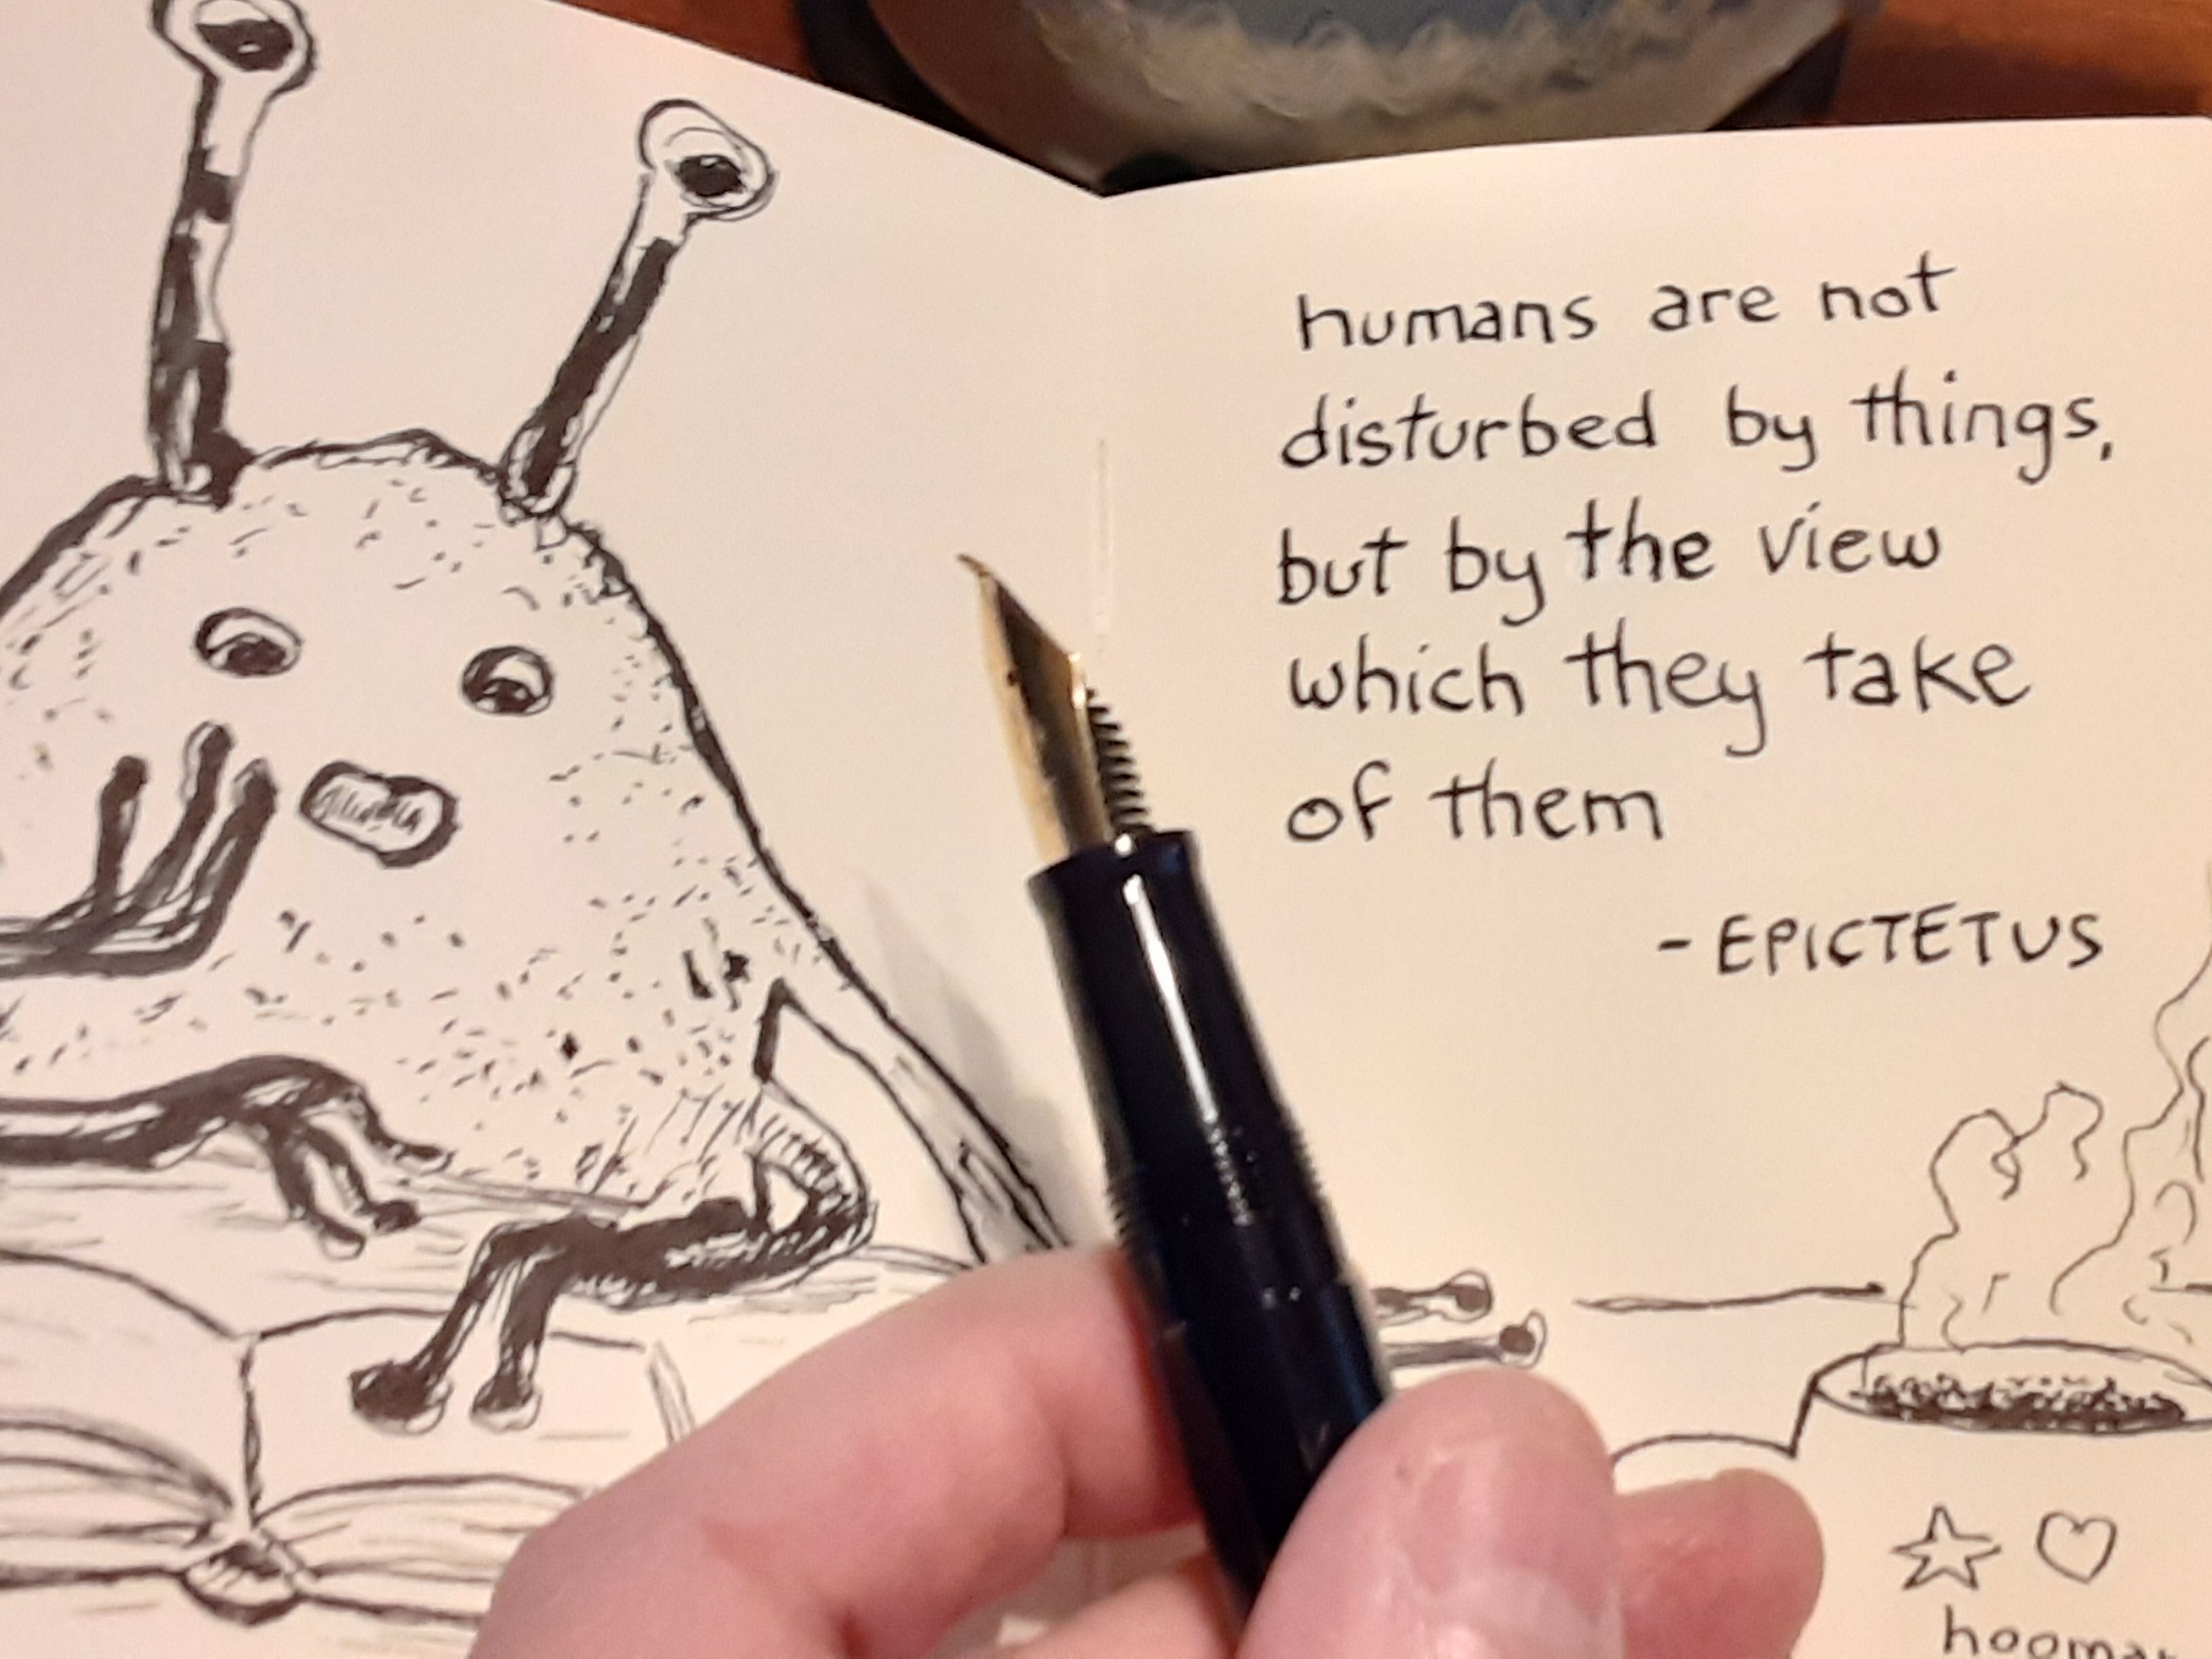 humans are not
disturbed by things,
but by the view
which they take
of them
- EPICTETUS